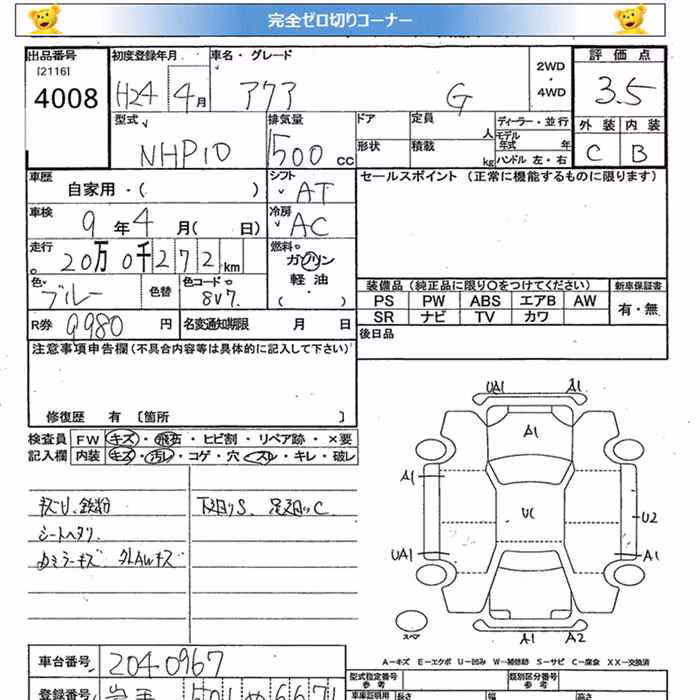 完全ゼロ切りコーナー
出品番号 初度登録年月 車名・グレード 2WD・4WD 評価点
[2116]
4008 H24 4月 アクア G 3.5
型式 排気量 ドア 定員 人 ディーラー・並行 外装 内装
NHP10 1500cc 形状 積載 kg モデル年式 年 ハンドル 左・右 C B
車歴 シフト セールスポイント (正常に機能するものに限ります)
自家用・( ) AT
車検 冷房
9年4月( 日) AC
走行 燃料
20万0千272km ガソリン
色 色替 色コード 軽油
ブルー 8V7 ・( )
装備品 (純正品に限り○をつけてください) 新車保証書
PS PW ABS エアB AW 有・無
SR ナビ TV カワ
R券 9980円 名変通知期限 月 日 後日品
注意事項申告欄 (不具合内容等は具体的に記入して下さい)
修復歴 有 [箇所 ]
検査員 FW キズ・飛石・ヒビ割・リペア跡・×要
記入欄 内装 キズ・汚レ・コゲ・穴・スレ・キレ・破レ
キズU、鉄粉 下廻りS、足廻りC
シートヘタリ
ミラーキズ AWキズ
UA1 A1
A1
A1
UC U2
UA1 A1
スペア A1 A2
A―キズ E―エクボ U―凹み W―補修跡 S―サビ C―腐食 XX―交換済
車台番号 2040967
型式指定番号 類別区分番号
参考 参考
登録番号 岩手 501 667
車庫証明用 長さ 幅 高さ